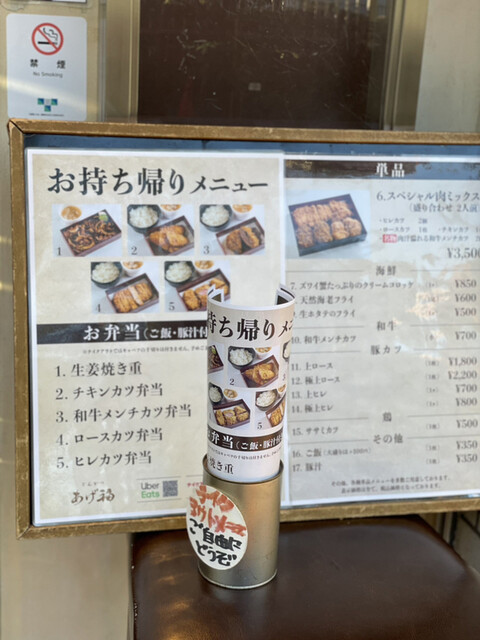 禁煙
No Smoking
お持ち帰りメニュー
1
2
3
4
5
お弁当（ご飯・豚汁付
1. 生姜焼き重
2. チキンカツ弁当
3. 和牛メンチカツ弁当
4. ロースカツ弁当
5. ヒレカツ弁当
とんかつ
あげ福
Uber
Eats
単品
6. スペシャル肉ミックス
（盛り合わせ 2人前）
・ヒレカツ 2個
・ロースカツ 1枚 ・チキンカツ
肉汁溢れる和牛メンチカツ
¥3,500
海鮮
7. ズワイ蟹たっぷりのクリームコロッケ ¥850
天然海老フライ ¥600
生ホタテのフライ ¥500
和牛
10. 和牛メンチカツ ¥700
豚カツ
11. 上ロース ¥1,800
12. 極上ロース ¥2,200
13. 上ヒレ ¥700
14. 極上ヒレ ¥800
鶏
15. ササミカツ ¥500
その他
16. ご飯 ¥350
17. 豚汁 ¥350
持ち帰りメニ
2
4
5
お弁当（ご飯・豚汁付
焼き重
テイク
アウトメニュー
ご自由に
どうぞ